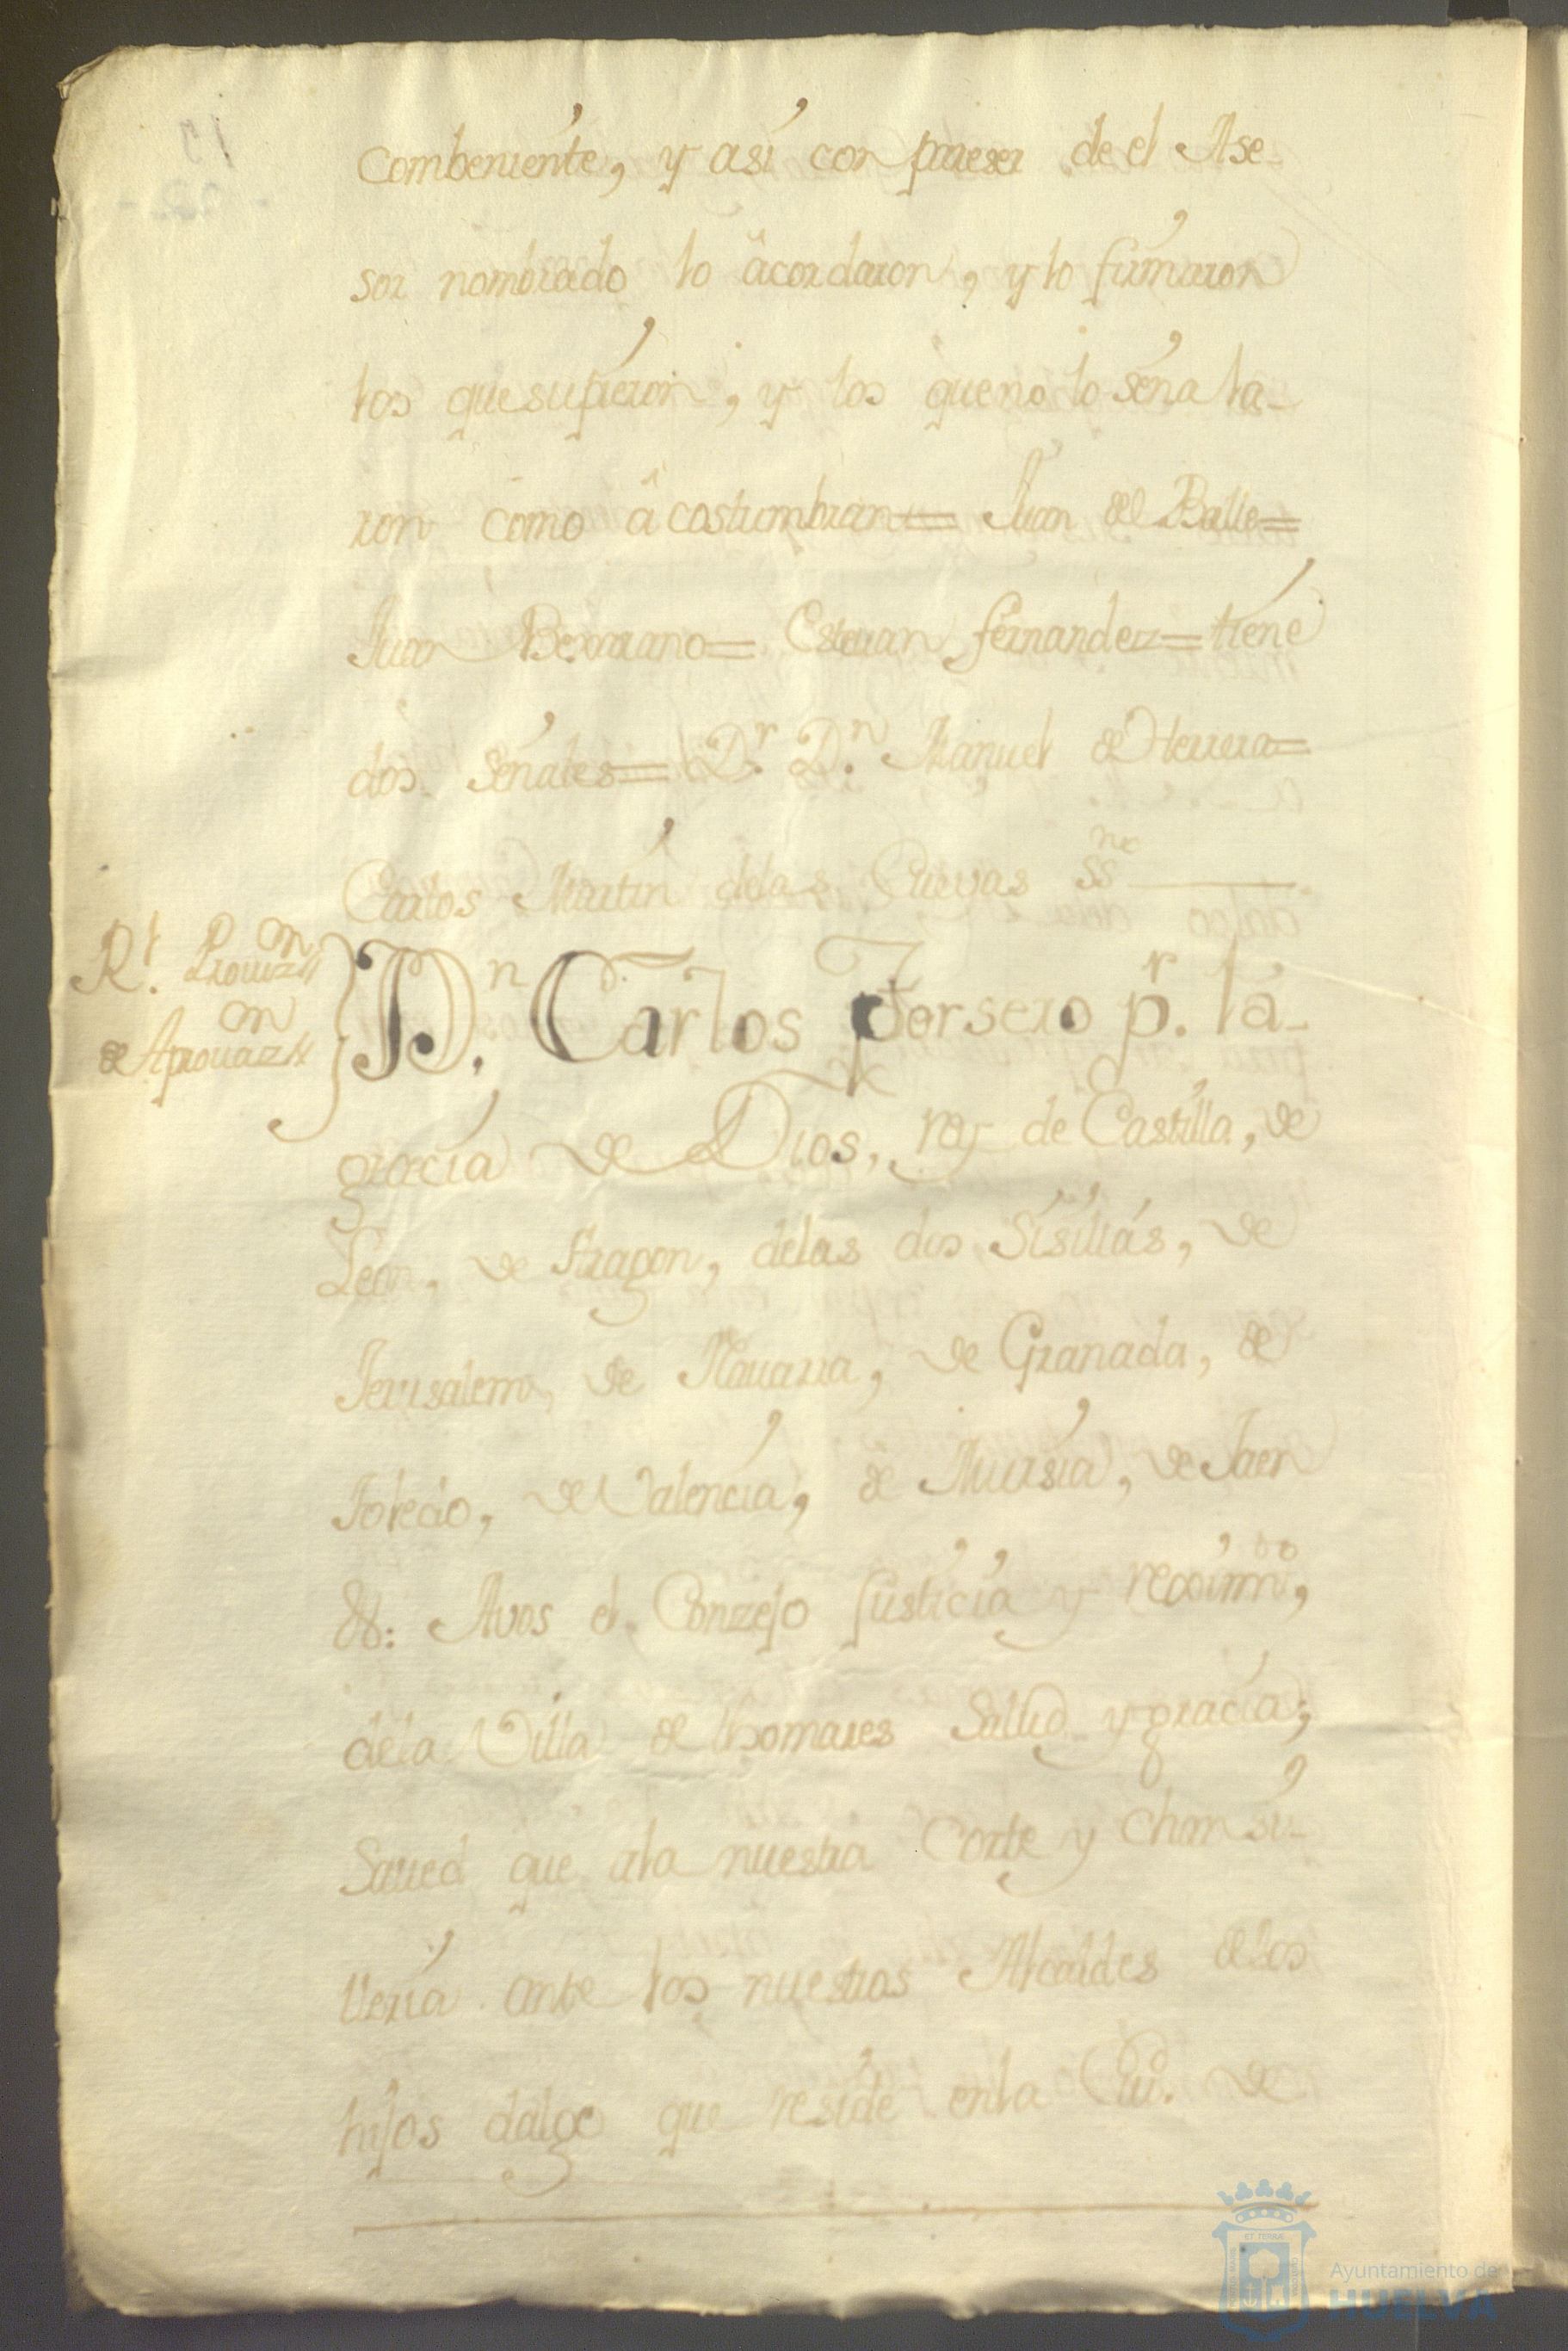 Combeniente, y así con pareser de el Ase-
sor nombrado lo âcordaron, y lo firmaron
los que supieron, y los que no lo señala-
ron como âcostumbran= Juan de el Balle=
Juan Bexarano= Estevan fernandez= tiene
dos señales= D.r D.n Manuel de Herrera=
Carlos Martin delas Cuevas SS.no
R.l Prouiz.on
de Aprouaz.on
D.n Carlos Torsero p.r la-
gracia de Dios, rey de Castilla, de
Leon, de Aragon, delas dos Sisilias, de
Jerusalem, de Nauarra, de Granada, de
Toledo, de Valencia, de Mursia, de Jaen
&: Avos el Conzejo Justicia y reximi.to,
dela Villa de thomares Salud y gracia;
Saued que ala nuestra Corte y chansi-
lleria ante los nuestros Alcaldes delos
hijos dalgo que reside enla Ciu.d de
Ayuntamiento de
HUELVA